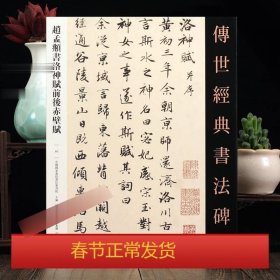 傳世經典書法碑
趙孟頫書洛神賦前後赤壁賦
洛神賦 并序
黃初三年余朝京師還濟洛川古人有
言斯水之神名曰宓妃感宋玉對楚王
神女之事遂作斯賦其詞曰
余從京域言歸東藩背伊闕越轘轅
經通谷陵景山日既西傾車殆馬
春节正常发货